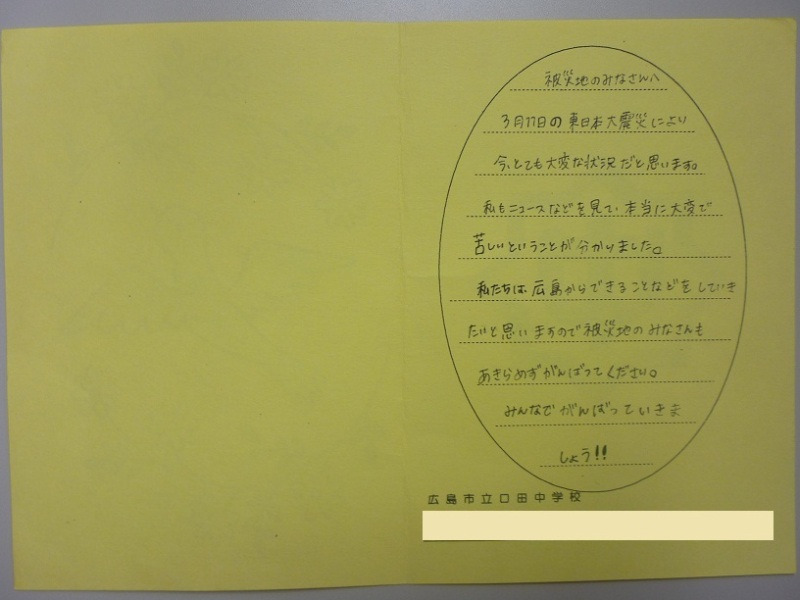 被災地のみなさんへ
3月11日の東日本大震災により
今、とても大変な状況だと思います。
私もニュースなどを見て、本当に大変で
苦しいということが分かりました。
私たちは、広島からできることなどをしていき
たいと思いますので被災地のみなさんも
あきらめずがんばってください。
みんなでがんばっていきま
しょう!!
広島市立口田中学校